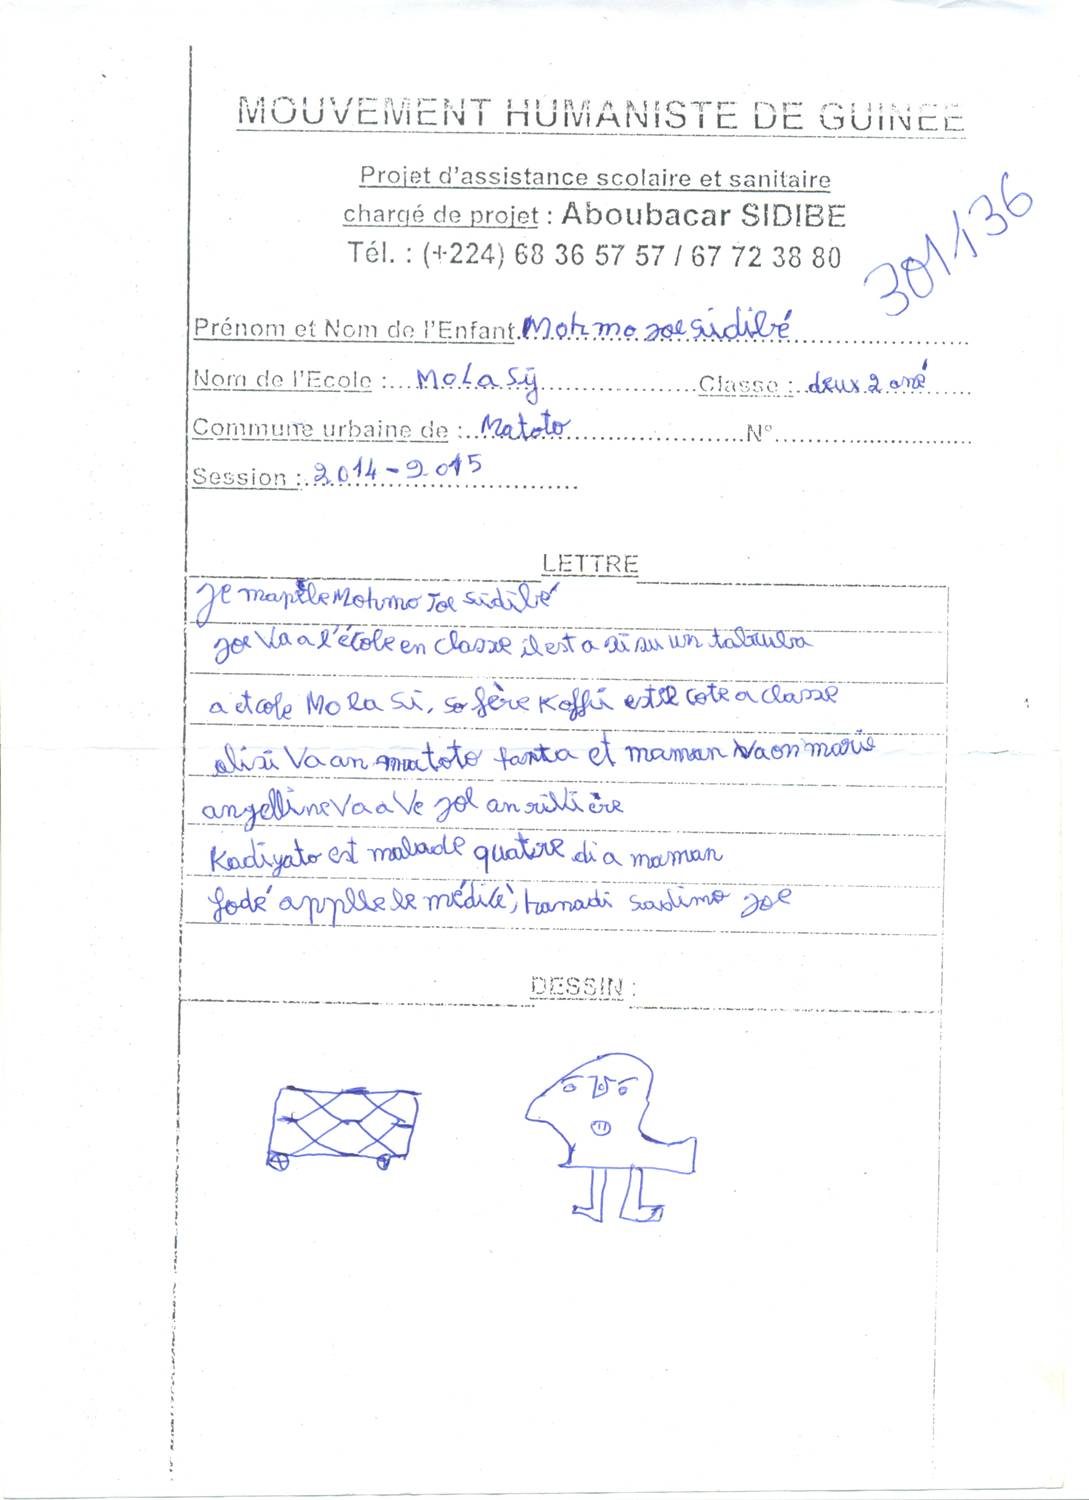 MOUVEMENT HUMANISTE DE GUINEE
Projet d'assistance scolaire et sanitaire
chargé de projet : Aboubacar SIDIBE
Tél. : (+224) 68 36 57 57 / 67 72 38 80
301/136
Prénom et Nom de l'Enfant Mohmo joe sidibé
Nom de l'Ecole : MoLa Sÿ Classe : deux 2 ané
Commune urbaine de : Matoto N°
Session : 2014-2015
LETTRE
Je mapèle Mohmo Joe sidibé
joe va a l'école en classe il est a si su un
a etcole Mo La Si, so fère Koffi est cote a classe
va an matoto fanta et maman va on marie
angelline va a ve joe an
Kadiyato est malade quatire di a maman
fodé appelle le médicé, joe
DESSIN :